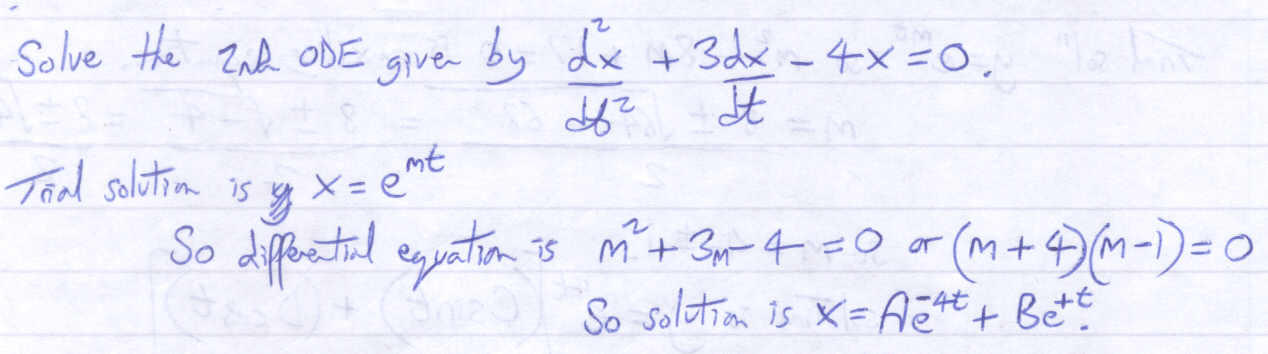 Solve the 2nd ODE given by d²x/dt² + 3dx/dt - 4x = 0.
Trial solution is x = e^mt
So differential equation is m² + 3m - 4 = 0 or (m + 4)(m - 1) = 0
So solution is x = Ae^-4t + Be^+t.